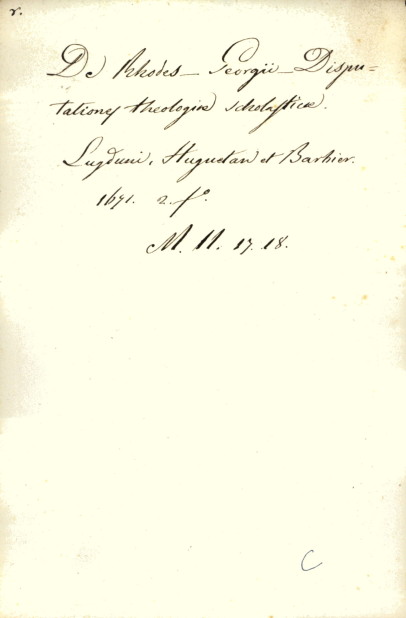 r.
De Rhodes – Georgii – Dispu=
tationes theologiæ scholasticæ.
Lugduni, Huguetan et Barbier.
1671. 2. fº.
M. II. 17. 18.
C